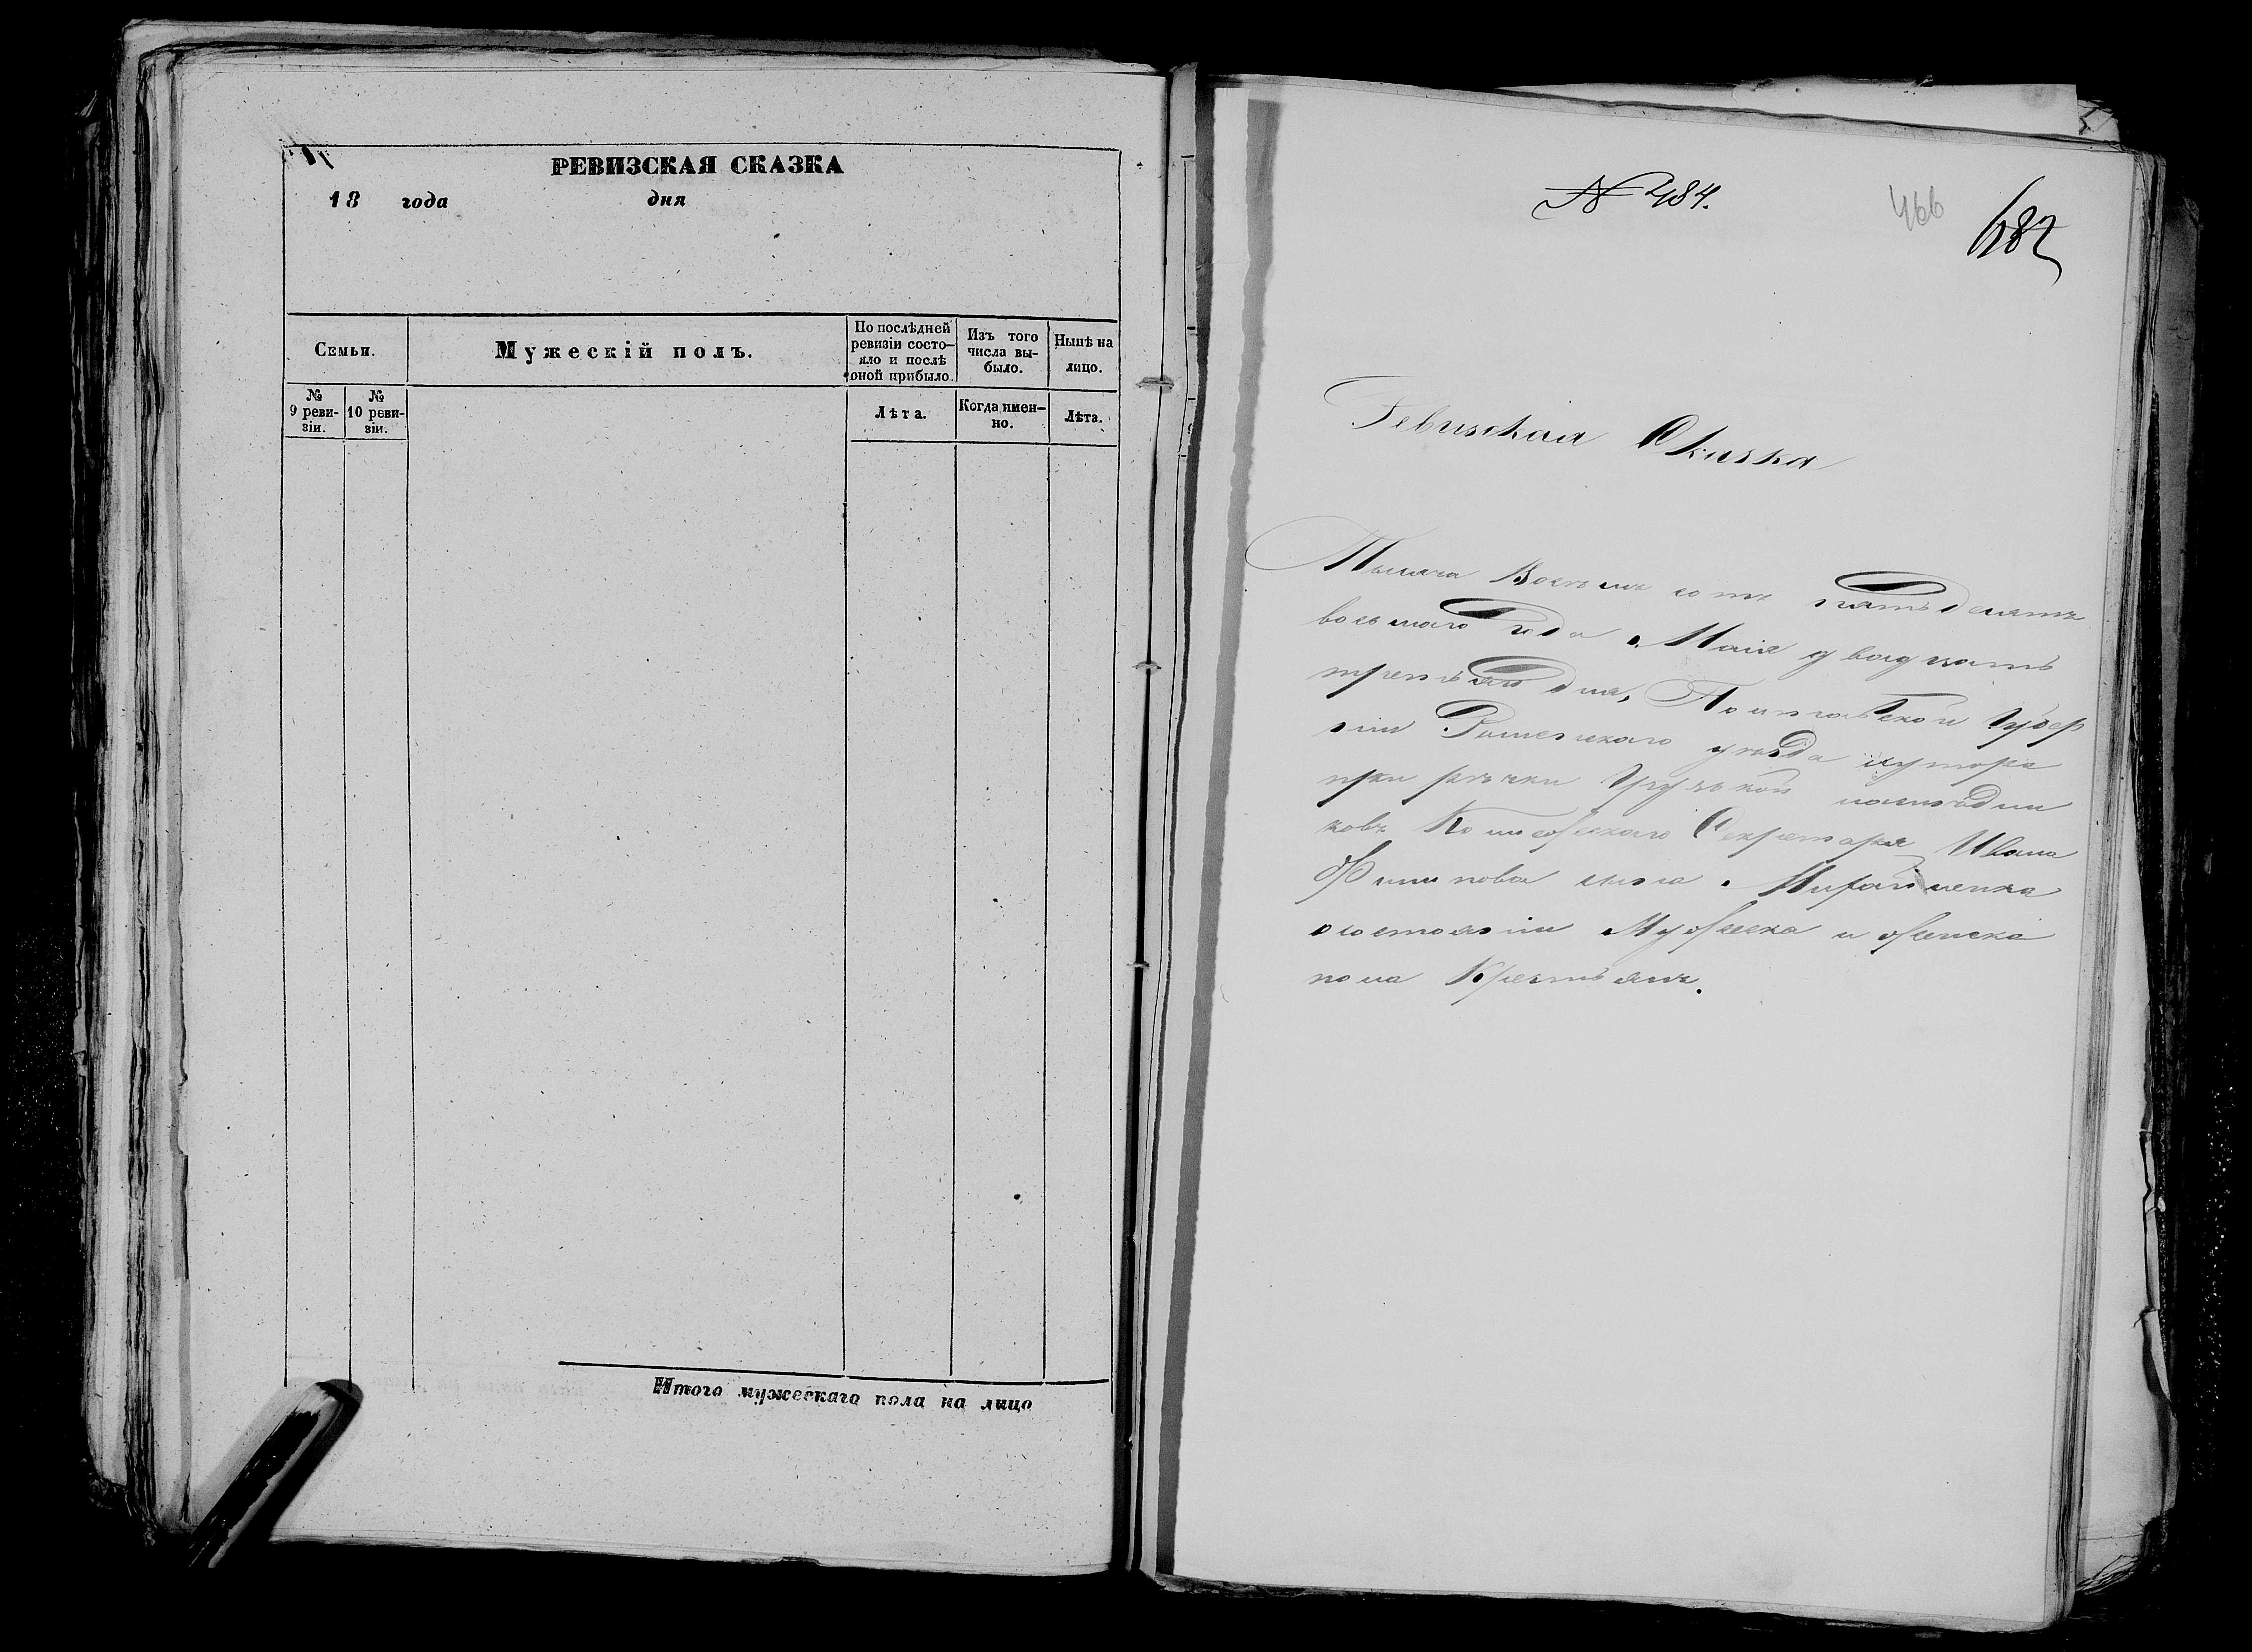 РЕВИЗСКАЯ СКАЗКА
18 года дня
Семьи.
Мужескій полъ.
По послѣдней ревизіи состо-
яло и послѣ
оной прибыло.
Изъ того
числа вы-
было.
Нынѣ на
лицо.
№
9 реви-
зіи.
№
10 реви-
зіи.
Лѣта.
Когда имен-
но.
Лѣта.
Итого мужескаго пола на лицо
№ 484.
466
682
Ревизская Сказка
Тысяча Восемь сотъ пятьдесятъ
восьмаго года Маія двадцать
третьяго дня, Полтавской Губер
ніи Роменскаго уезда хутора
при речки Грузской наслѣдни
ковъ Колежскаго Секретаря Ивана
Филипова сына
о состояніи Мужеска и женска
пола Крестьянъ.